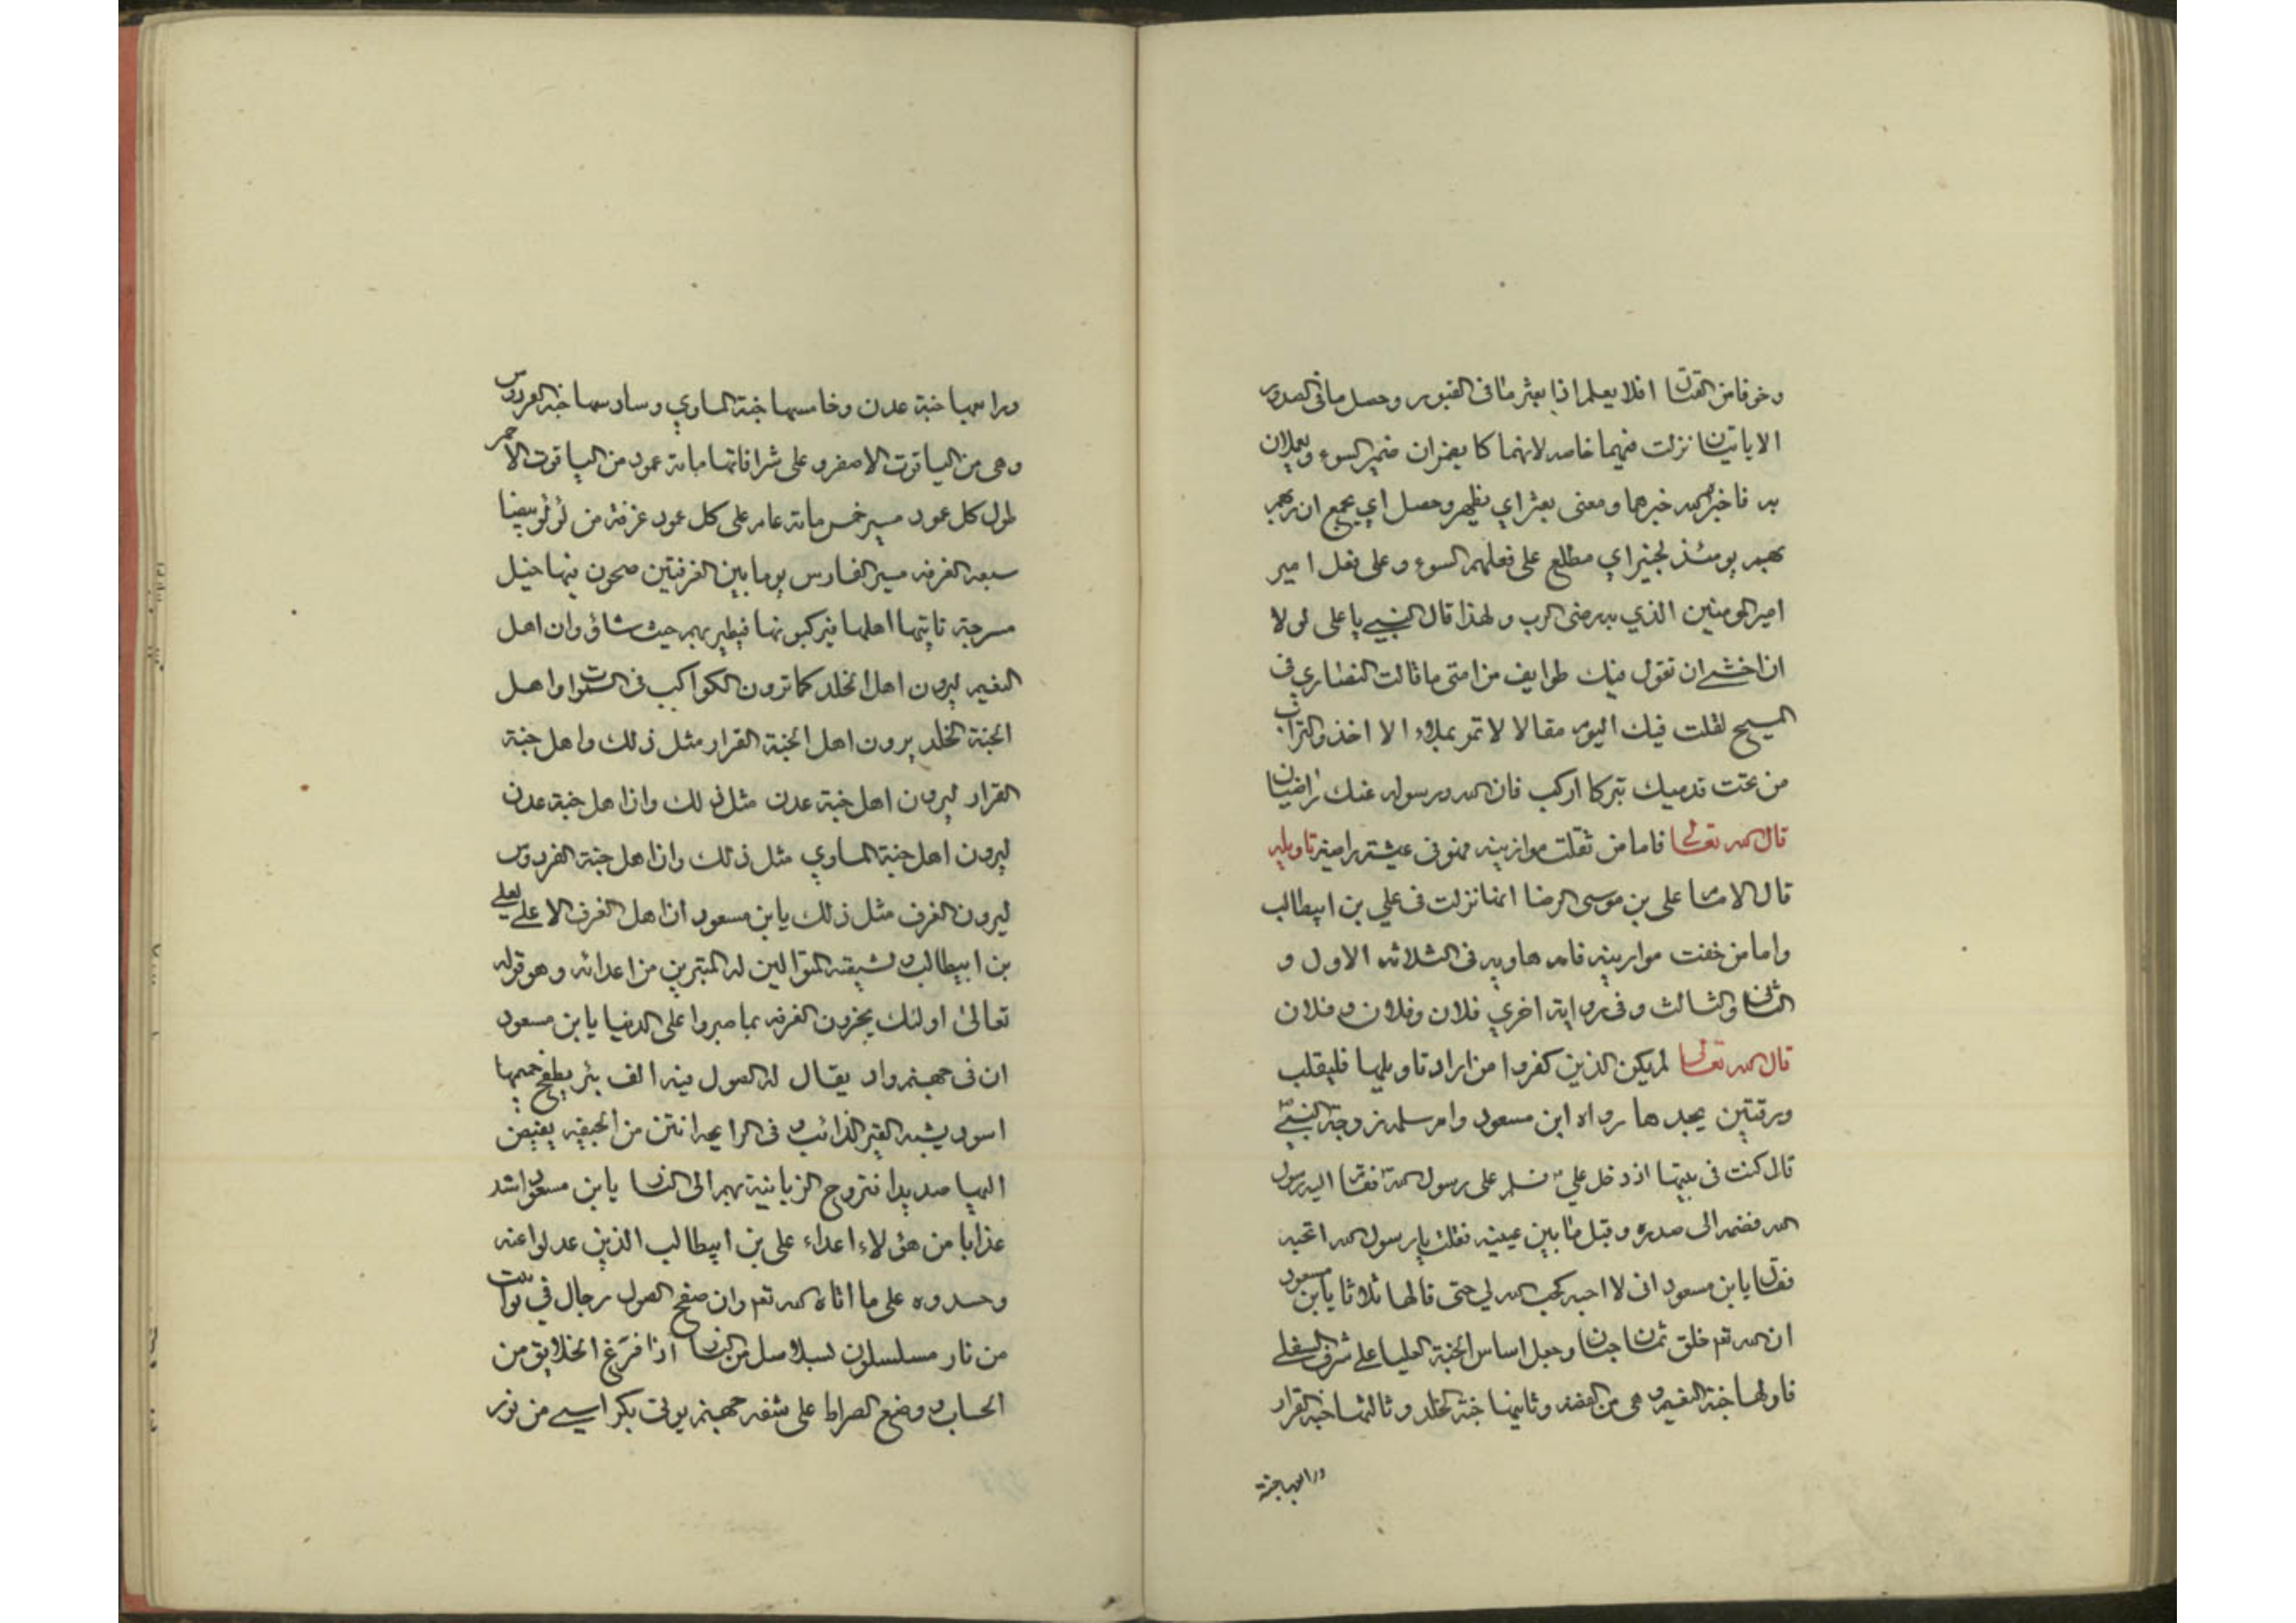 وخوفا من القتل افلا يعلم اذا بعثر ما فى القبور وحصل ما فى الصدور
الايا تين نزلت فيهما خاصه لانهما كا يضمران ضمير السوء ويعملان
به فاخبر الله خبرهما ومعنى بعثر اي يظهر وحصل اي يجمع ان ربهم
بهم يومئذ لخبير اي مطلع على فعلهم السوء وعلى فعل امير
امير المومنين الذي به رضى الرب ولهذا قال النبي يا على لولا
ان اخشى ان تقول فيك طوايف من امتى ما قالت النصارى فى
المسيح لقلت فيك اليوم مقالا لا تمر بملاء الا اخذوا التراب
من تحت قدميك تبركا اركب فان الله ورسوله عنك راضيان
قال الله تعالى فاما من ثقلت موازينه فهو فى عيشة راضية تاويله
قال الامام على بن موسى الرضا انها نزلت فى علي بن ابيطالب
واما من خفت موازينه فامه هاويه فى الثلاثه الاول و
الثانى والثالث وفى رواية اخري فلان وفلان وفلان
قال الله تعالى لم يكن الذين كفروا من اراد تاويلها فليقلب
ورقتين يجدها رواه ابن مسعود وام سلمه زوجة النبي ص
قال كنت فى بيتها اذ دخل علي فسلم على رسول الله فقام اليه رسول
الله فضمه الى صدره وقبل ما بين عينيه فقلت يا رسول الله اتحبه
فقال يا بن مسعود انى لا احبه كحب الله لي حتى قالها ثلاثا يا بن مسعود
ان الله تعم خلق ثمان جنان وجعل اساس الجنة العليا على شرف السفلى
فاولها جنة النعيم وهى من الفضه وثانيها جنة الخلد وثالثها جنة القرار
ورابعها جنة
ورابعها جنة عدن وخامسها جنة الماوي وسادسها جنة الفردوس
وهى من الياقوت الاصفر وعلى شرافاتها ماية عمود من الياقوت الاحمر
طول كل عمود مسير خمس ماية عام على كل عمود غرفة من لؤلؤ بيضا
سعه الغرفه مسير الفارس يوما بين الغرفتين صحون فيها خيل
مسرجة تاتيها اهلها فيركبونها فيطير بهم حيث شاؤ وان اهل
النعيم ليرون اهل الخلد كما ترون الكواكب فى السموات واهل
الجنة الخلد يرون اهل الجنة القرار مثل ذلك واهل جنة
القرار ليرون اهل جنة عدن مثل ذلك وان اهل جنة عدن
ليرون اهل جنة الماوي مثل ذلك وان اهل جنة الفردوس
ليرون الغرف مثل ذلك يا بن مسعود ان اهل الغرف الاعلى لعلي
بن ابيطالب وشيعته المتوالين له المتبرين من اعدائه وهو قوله
تعالى اولئك يجزون الغرفه بما صبروا على الدنيا يا بن مسعود
ان فى جهنم واد يقال له الصول فيه الف بئر يطفح حميمها
اسود يشبه القير الذائب وفى الرايحه انتن من الجيفه يفيض
اليها صديدا فتروح الزبانية بهم الى النار يا بن مسعود اشد
عذابا من هؤلاء اعداء على بن ابيطالب الذين عدلوا عنه
وحسدوه على ما اتاه الله تعم وان صفح الصول رجال في توابيت
من نار مسلسلون بسلاسل من النار اذا فرغ الخلايق من
الحساب ووضع الصراط على شفه جهنم يوتى بكراسي من نور